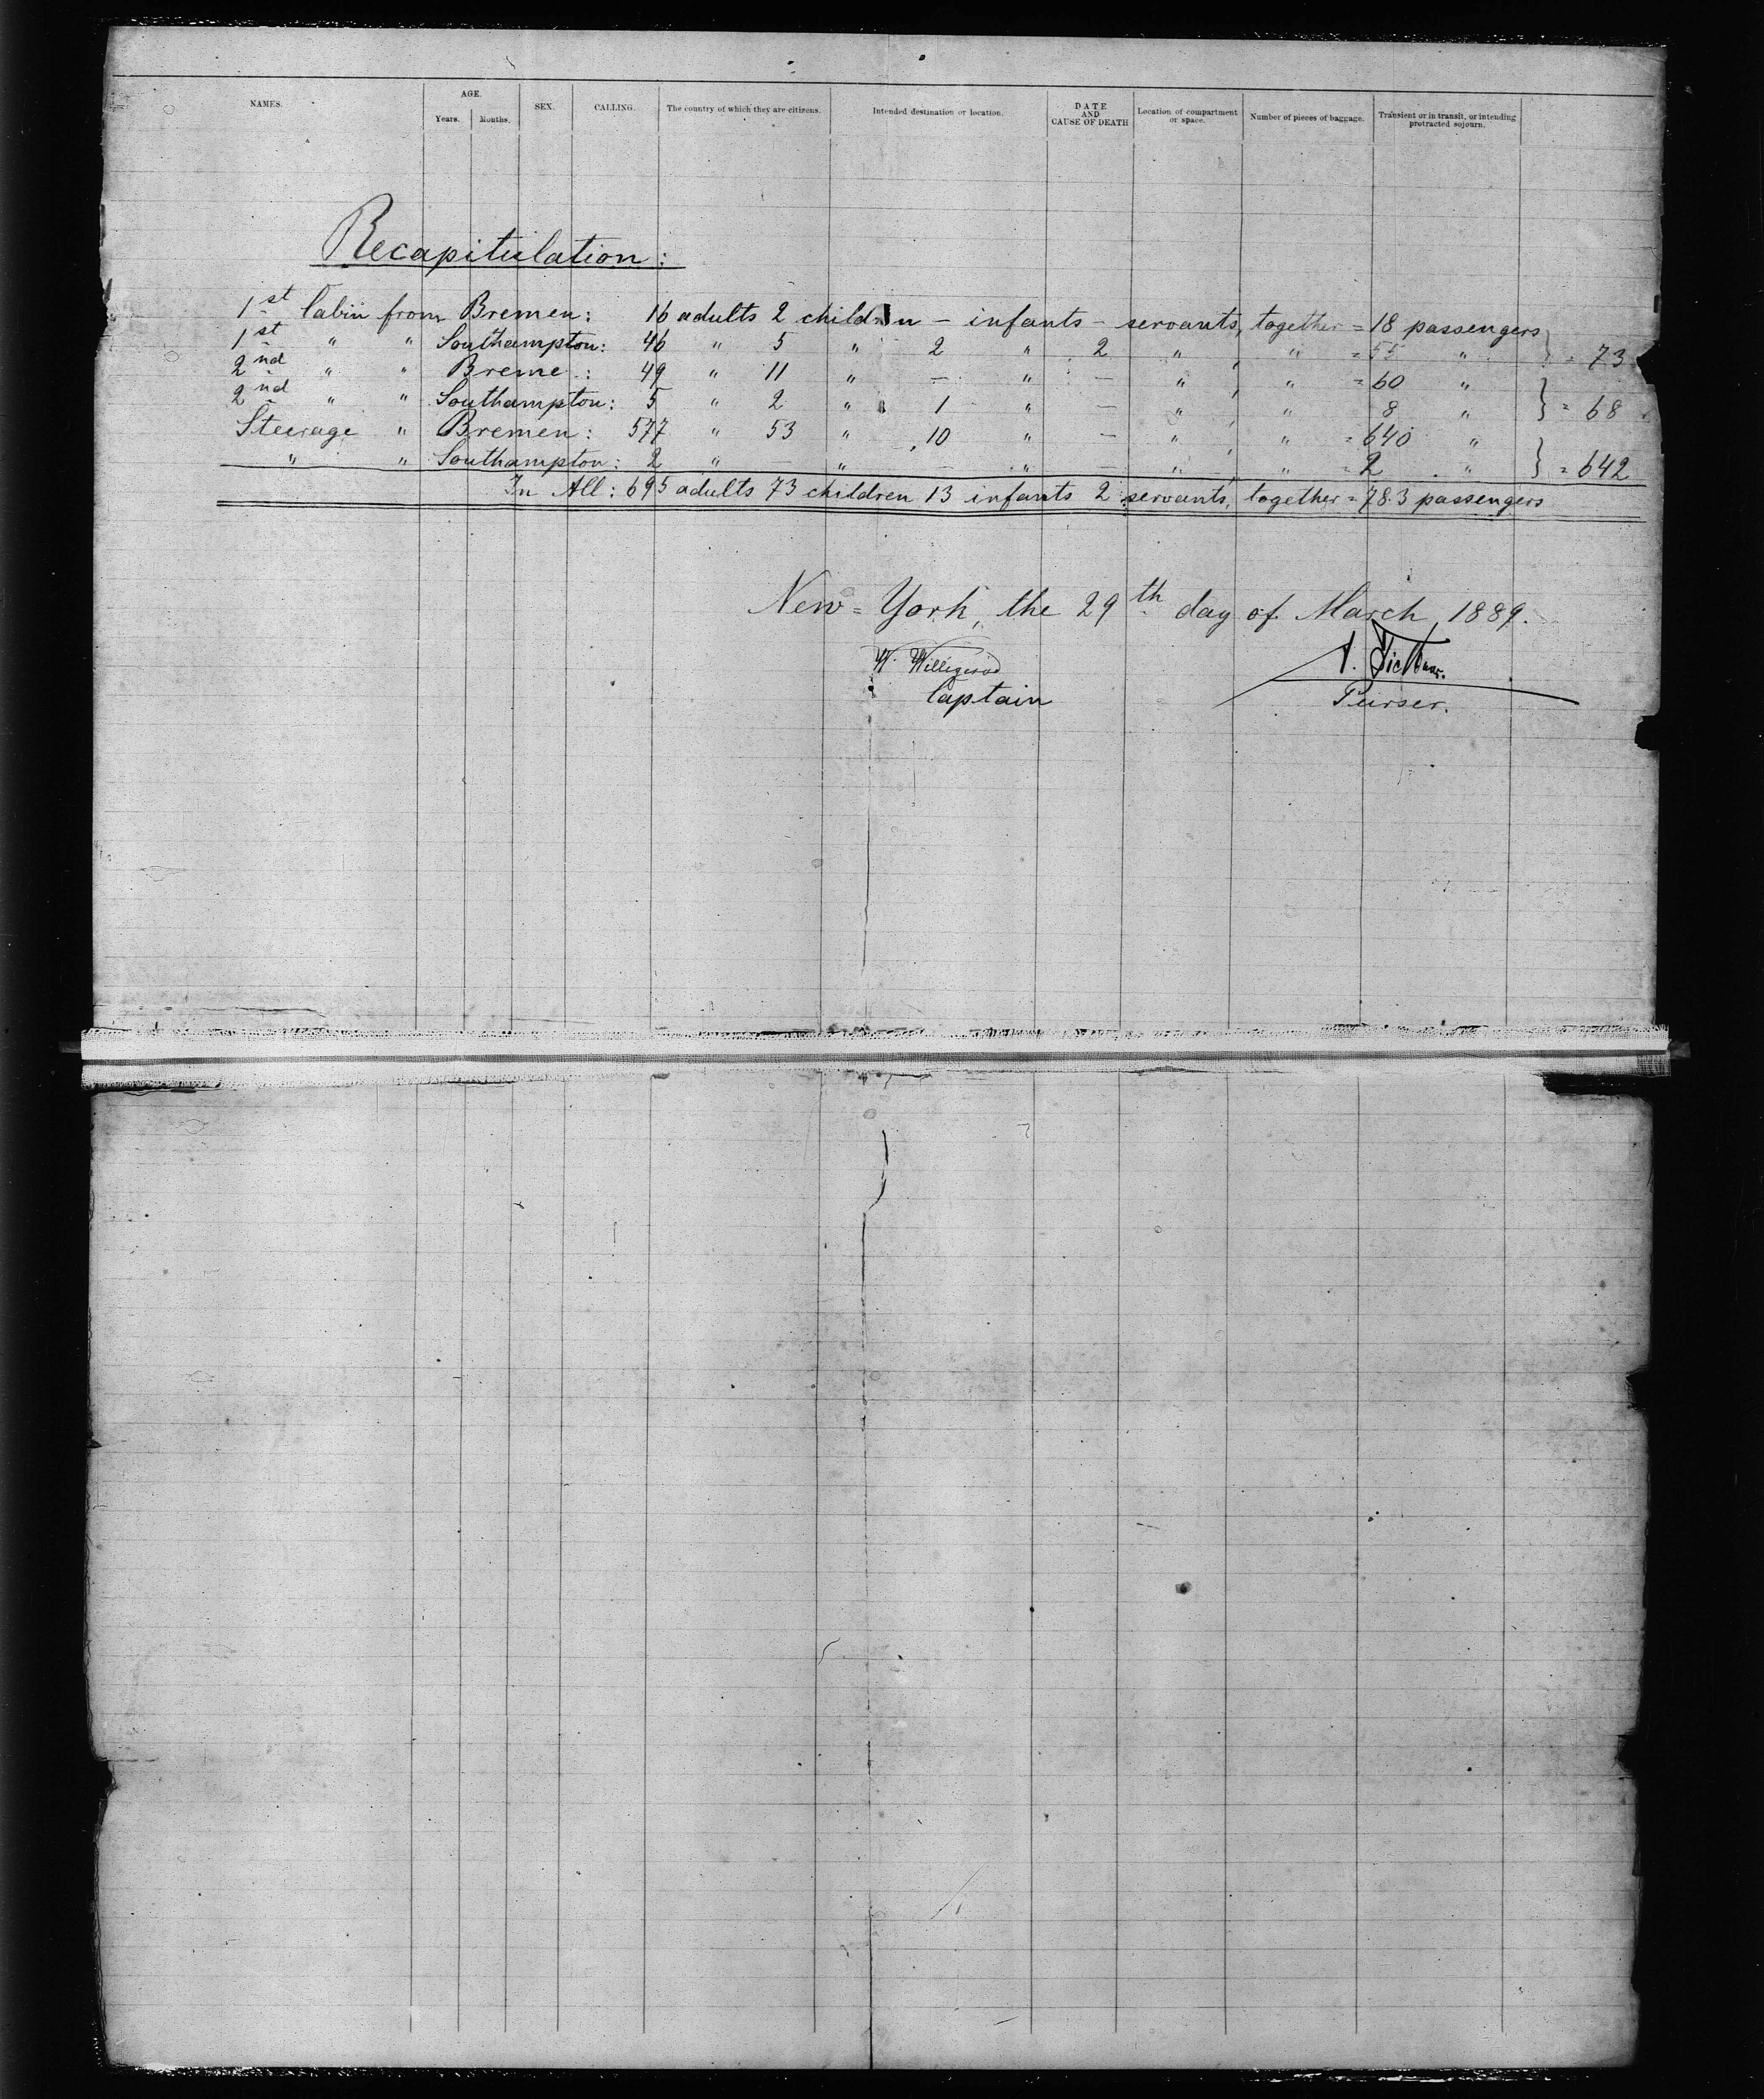 NAMES. AGE. SEX. CALLING. The country of which they are citizens. Intended destination or location. DATE AND CAUSE OF DEATH Location of compartment or space. Number of pieces of baggage. Transient or in transit, or intending protracted sojourn.
Years. Months.
Recapitulation:
1st Cabin from Bremen: 16 adults 2 children - infants - servants, together = 18 passengers
1st " " Southampton: 46 " 5 " 2 " 2 " , " = 55 " } = 73
2nd " " Breme : 49 " 11 " - " - " , " = 60 "
2nd " " Southampton: 5 " 2 " 1 " - " , " 8 " } = 68
Steerage " Bremen: 577 " 53 " 10 " - " , " = 640 "
" " Southampton: 2 " - " - " - " , " = 2 " } = 642
In All: 695 adults 73 children 13 infants 2 servants, together = 783 passengers
New=York, the 29th day of March 1889.
W. Willigerod
Captain
Purser.